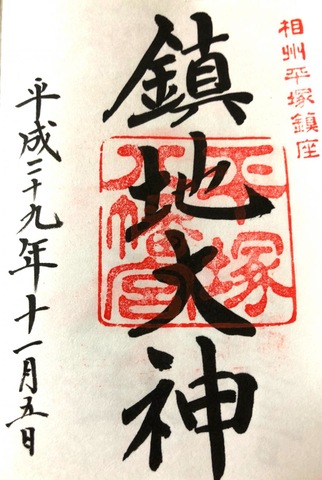 相州平塚鎮座
鎮地大神
平塚
八幡宮
平成二十九年十一月五日